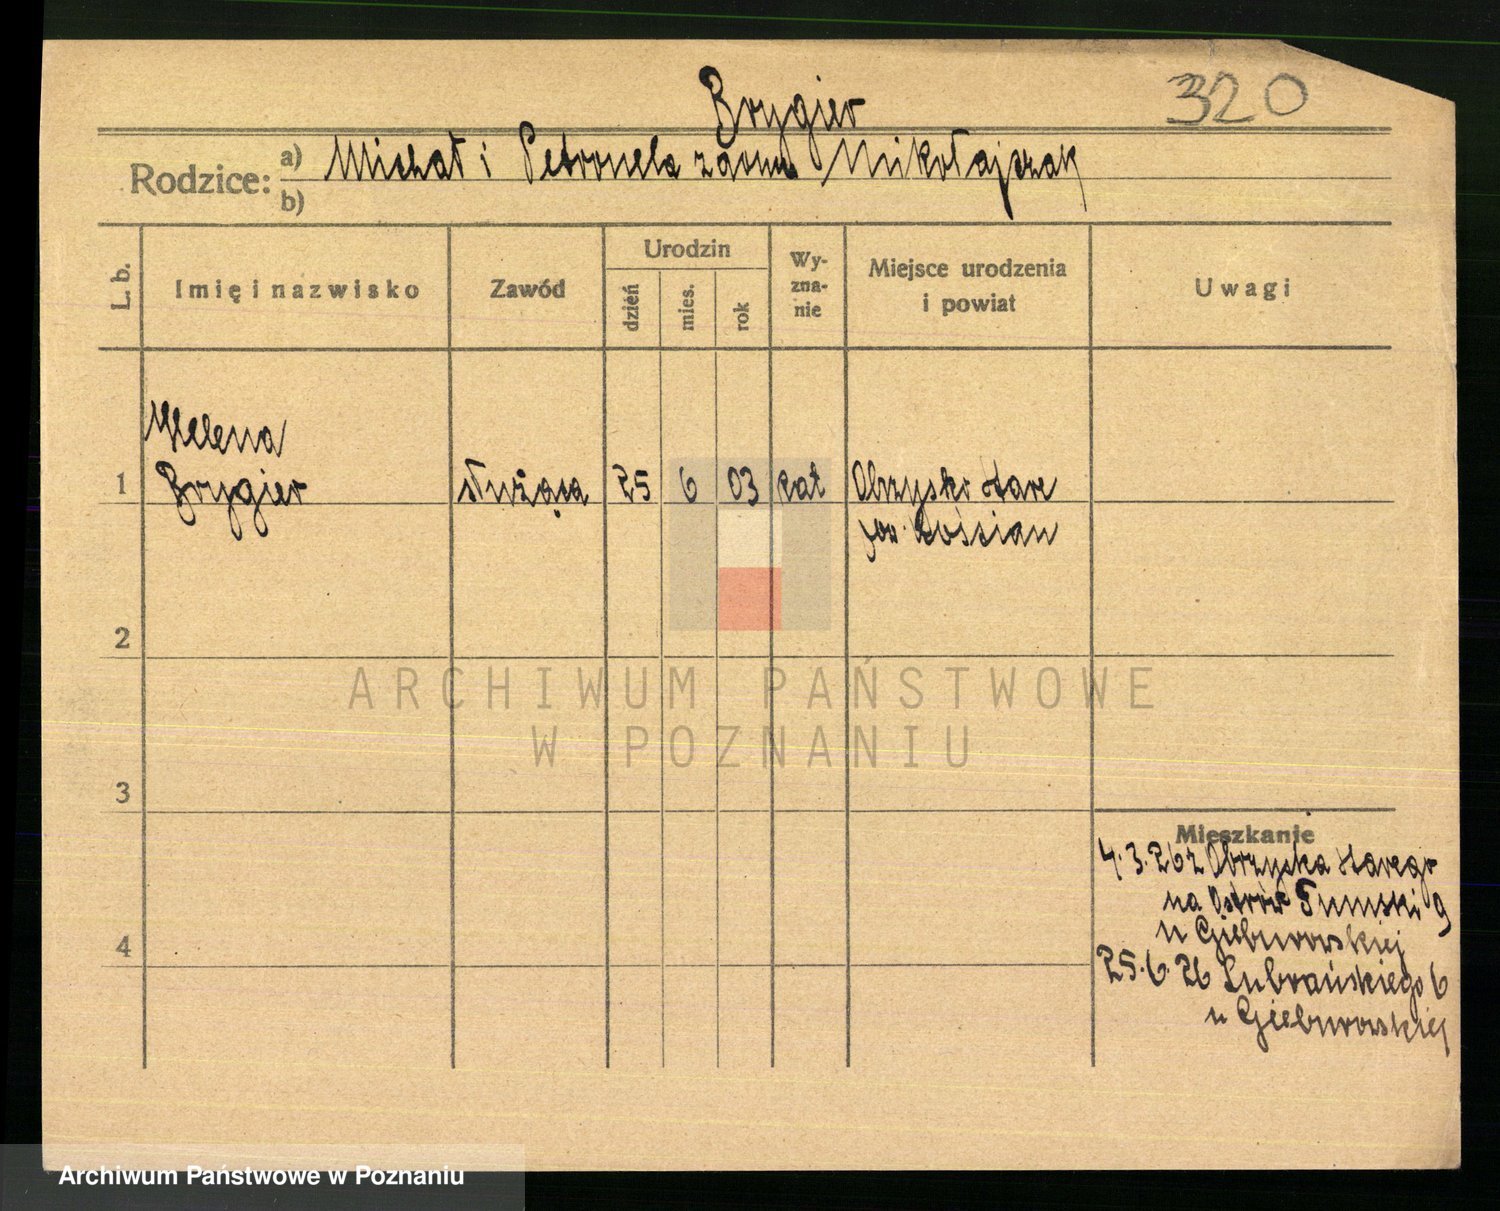 Brygier
320
Rodzice: a) Michał i Petronela z domu Mikołajczak
b)
L. b.
Imię i nazwisko
Zawód
Urodzin
dzień
mies.
rok
Wy-
zna-
nie
Miejsce urodzenia
i powiat
Uwagi
Helena
1 Brygier służąca 25 6 03 kat Obrzysko stare
pow. Kościan
2
3
4
Mieszkanie
4.3.26 z Obrzyska starego
na Ostrów Tumski 9
u Gieburowskiej
25.6.26 Lubrańskiego 6
u Gieburowskiej
ARCHIWUM PAŃSTWOWE
W POZNANIU
Archiwum Państwowe w Poznaniu